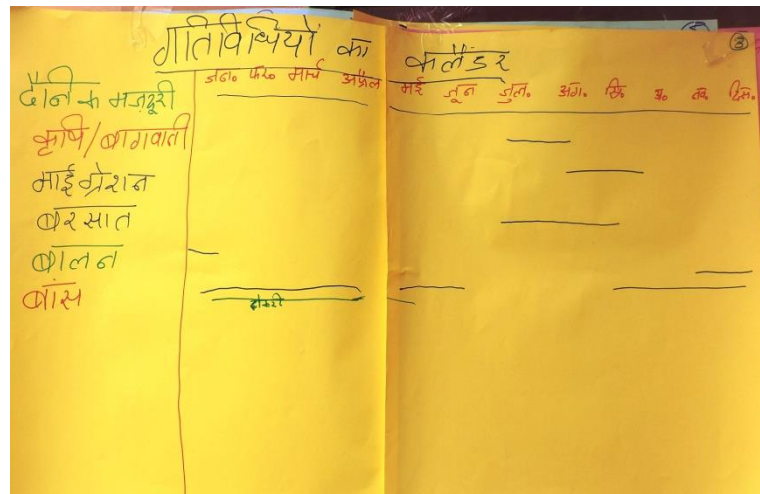 ③
गतिविधियों का कलैंडर
जन० फर० मार्च अप्रैल मई जून जुल० अग० सि० अ० नव० दिस०
दैनिक मज़दूरी
कृषि/बागवानी
माईग्रेशन
बरसात
बालन
बांस
टोकरी